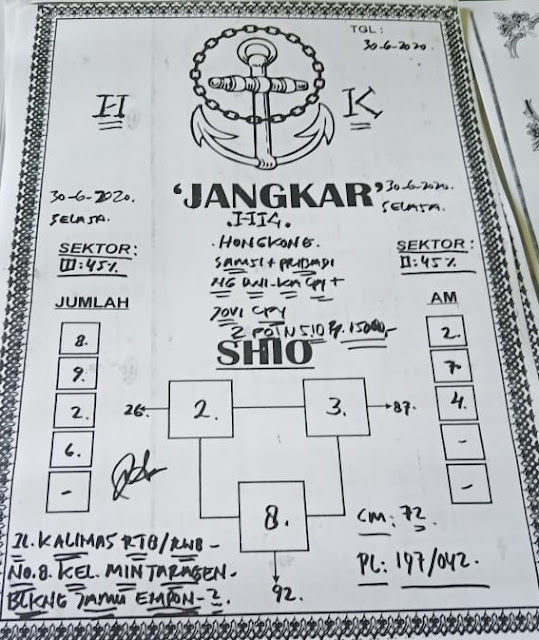 TGL :
30-6-2020.
H
K
'JANGKAR'
30-6-2020.
SELASA.
30-6-2020.
SELASA.
HONGKONG.
SEKTOR:
II: 45%
SEKTOR :
II: 45%
JUMLAH
AM
2 POTN 510 Rp. 15000,-
SHIO
8.
9.
2.
6.
-
2.
7.
4.
-
-
26.
2.
3.
87.
8.
92.
CM: 72
PL: 197/042.
JL. KALIMAS RT8/RW8 -
NO.8. KEL. MINTARAGEN -
EMPON-2.